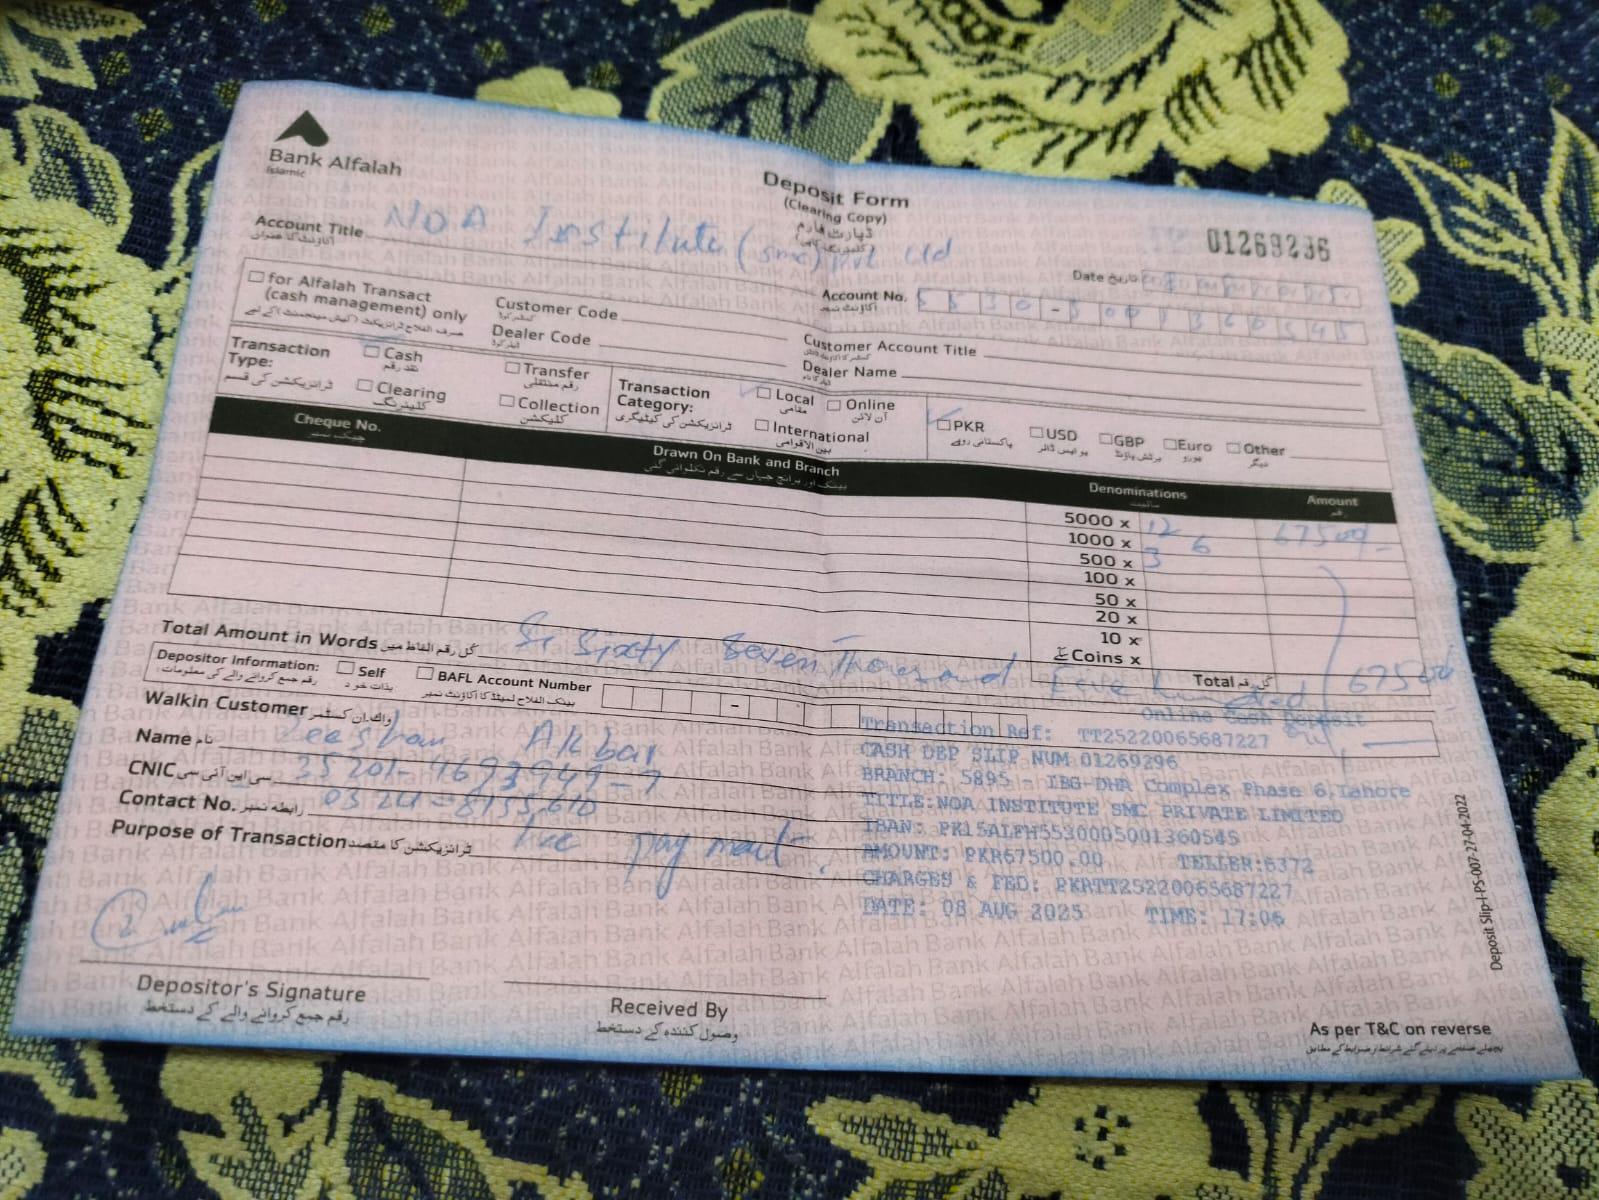 Bank Alfalah
Islamic
Deposit Form
(Clearing Copy)
ڈپازٹ فارم
01269296
Account Title NOA Institute (smc) Pvt Ltd
اکاؤنٹ کا عنوان
Date تاریخ
Account No.
اکاؤنٹ نمبر
for Alfalah Transact
(cash management) only
Customer Code
Dealer Code
Customer Account Title
Dealer Name
Transaction
Type:
ٹرانزیکشن کی قسم
Cash
نقد رقم
Transfer
رقم منتقلی
Clearing
کلیئرنگ
Collection
کلیکشن
Transaction
Category:
ٹرانزیکشن کی کیٹیگری
Local
مقامی
Online
آن لائن
International
بین الاقوامی
PKR
پاکستانی روپے
USD
یو ایس ڈالر
GBP
برٹش پاؤنڈ
Euro
یورو
Other
دیگر
Cheque No.
چیک نمبر
Drawn On Bank and Branch
بینک اور برانچ جہاں سے رقم نکلوائی گئی
Denominations
Amount
رقم
5000 x 12 67500/-
1000 x 6
500 x 3
100 x
50 x
20 x
10 x
Coins x
Total کل رقم 67500
Total Amount in Words کل رقم الفاظ میں Sixty Seven Thousand Five hundred
Depositor Information:
رقم جمع کروانے والے کی معلومات:
Self
بذات خود
BAFL Account Number
بینک الفلاح لمیٹڈ کا اکاؤنٹ نمبر
Walkin Customer واک ان کسٹمر
Name نام Zeeshan Akbar
CNIC سی این آئی سی 35201-4693949-7
Contact No. رابطہ نمبر
Purpose of Transaction ٹرانزیکشن کا مقصد Fee payment
Online Cash Deposit
Transaction Ref: TT25220065687227
CASH DEP SLIP NUM 01269296
BRANCH: 5895 - IBG-DHA Complex Phase 6,Lahore
TITLE:NOA INSTITUTE SMC PRIVATE LIMITED
IBAN: PK15ALFH5530005001360545
AMOUNT: PKR67500.00 TELLER:6372
CHARGES & FED: PKRTT25220065687227
DATE: 08 AUG 2025 TIME: 17:06
Depositor's Signature
رقم جمع کروانے والے کے دستخط
Received By
وصول کنندہ کے دستخط
As per T&C on reverse
Deposit Slip-I-PS-007-27-04-2022